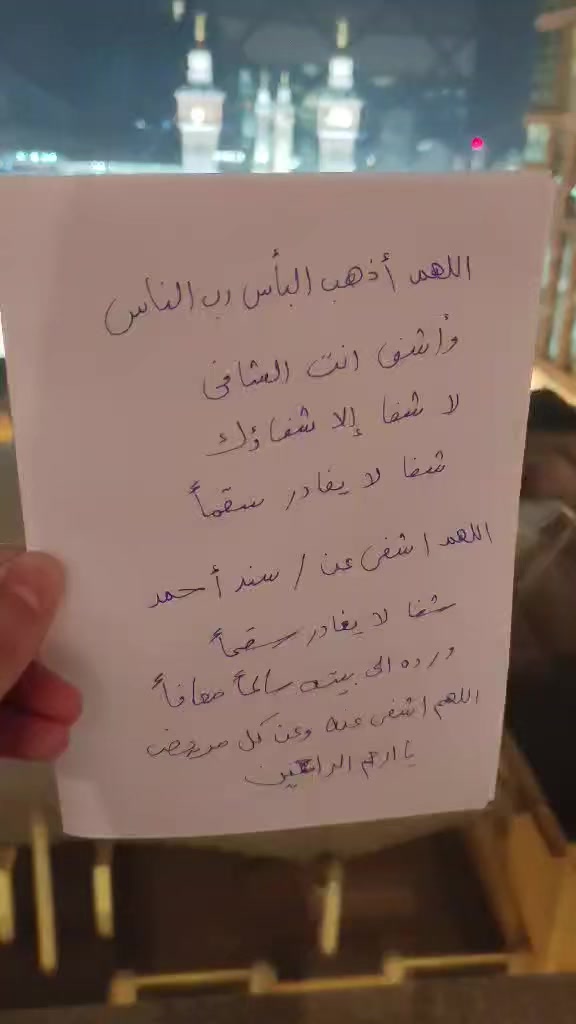 اللهم أذهب البأس رب الناس
وأشفى انت الشافى
لا شفا إلا شفاؤك
شفا لا يغادر سقماً
اللهم اشفى عن / سند أحمد
شفا لا يغادر سقماً
ورده الى بيته سالماً معافاً
اللهم اشفى عنه وعن كل مريض
يا ارحم الراحمين